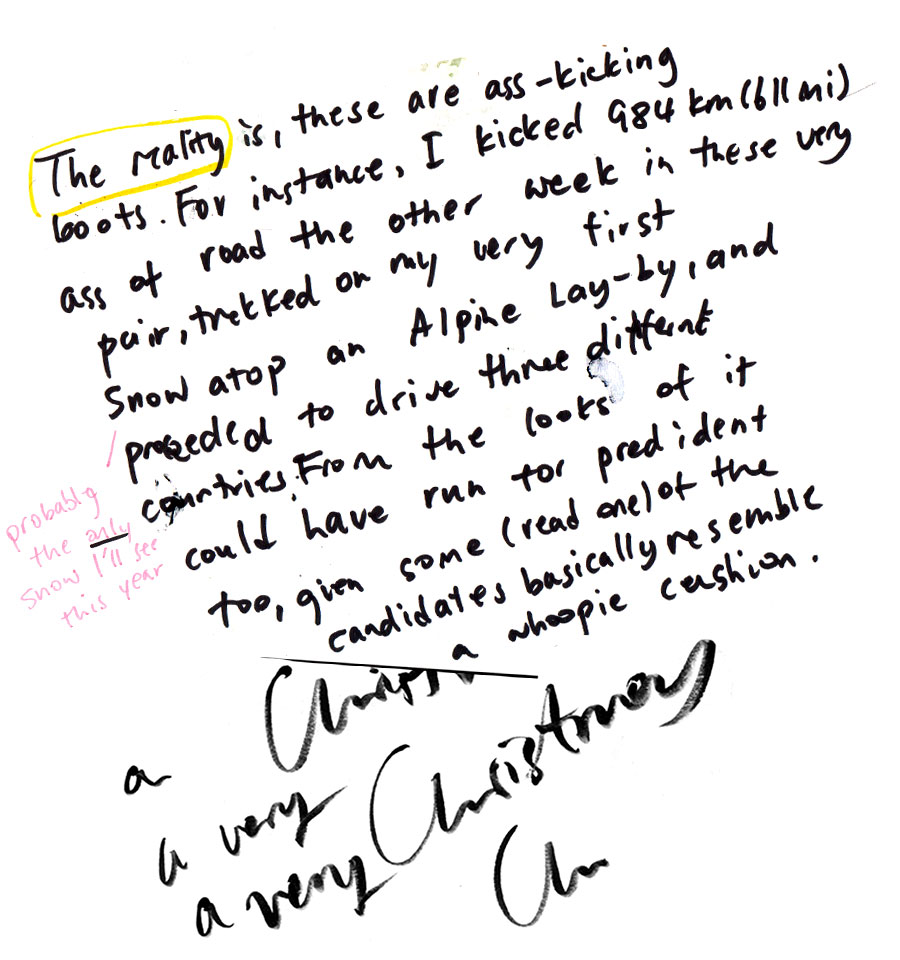 The reality is, these are ass-kicking
boots. For instance, I kicked 984 km (611 mi)
ass of road the other week in these very
pair, trekked on my very first
Snow atop an Alpine Lay-by, and
proceeded to drive three different
countries. From the looks of it
could have run for predident
too, given some (read one) of the
candidates basically resemble
a whoopie cushion.
probably
the only
snow I'll see
this year
a
a very
a very Christmas